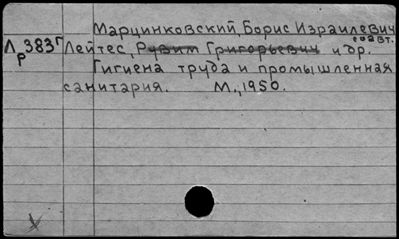 Марцинковский, Борис Израилевич
соавт.
Лр383г Лейтес, Рувим Григорьевич и др.
Гигиена труда и промышленная
санитария. М., 1950.